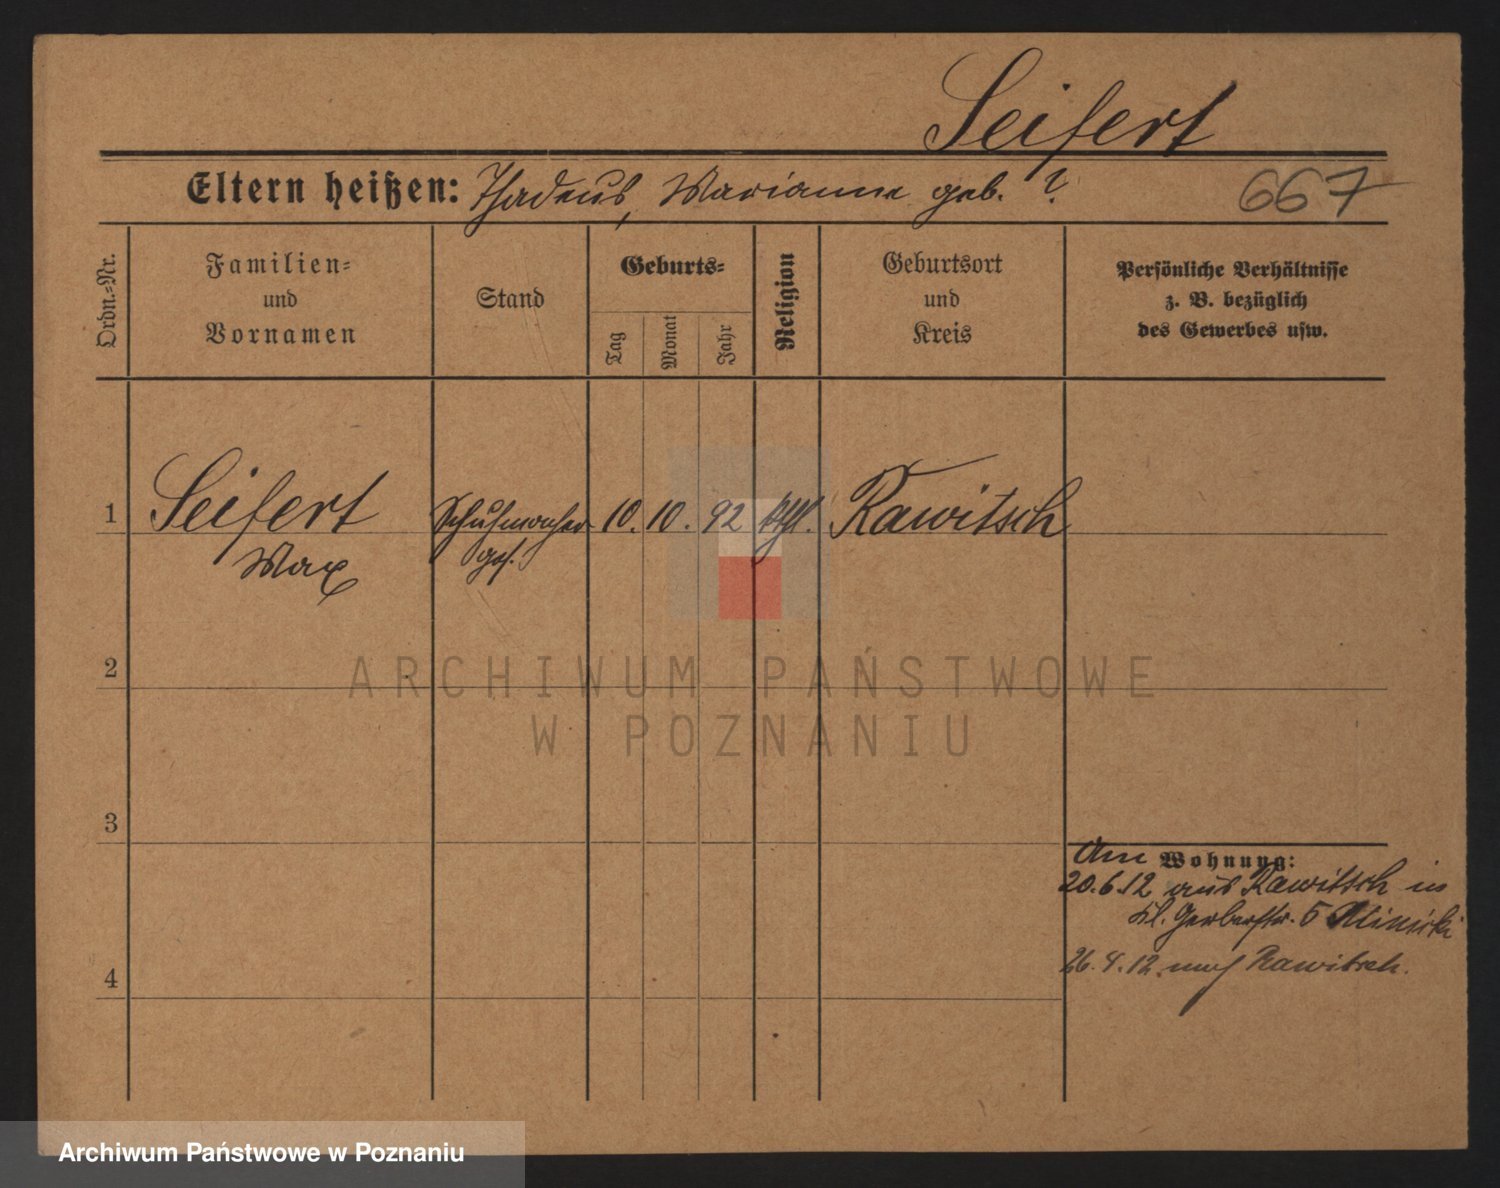 Seifert
Eltern heißen: Thadeus, Marianne geb. ?
667
Ordn.-Nr.
Familien-
und
Vornamen
Stand
Geburts-
Tag
Monat
Jahr
Religion
Geburtsort
und
Kreis
Persönliche Verhältnisse
z. B. bezüglich
des Gewerbes usw.
1 Seifert Schuhmacher- 10. 10. 92 kth. Rawitsch
Max ges.
ARCHIWUM PAŃSTWOWE
W POZNANIU
2
3
Am Wohnung:
20.6.12 aus Rawitsch in
kl. Gerberstr. 5
26. 12. nach Rawitsch.
4
Archiwum Państwowe w Poznaniu